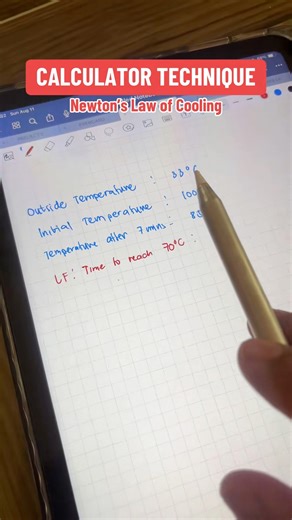 Sun Aug 11
CALCULATOR TECHNIQUE
Newton's Law of Cooling
Outside Temperature :
Initial Temperature : 100
Temperature after 7 mins :
LF: Time to reach 70°C :